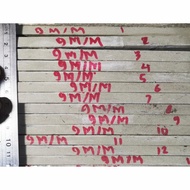 9 M/M 1
9 M/M 2
9 M/M 3
9 M/M 4
9 M/M 5
9 M/M 6
9 M/M 7
9 M/M 8
9 M/M 9
9 M/M 10
9 M/M 11
9 M/M 12
9 M/M
10 11